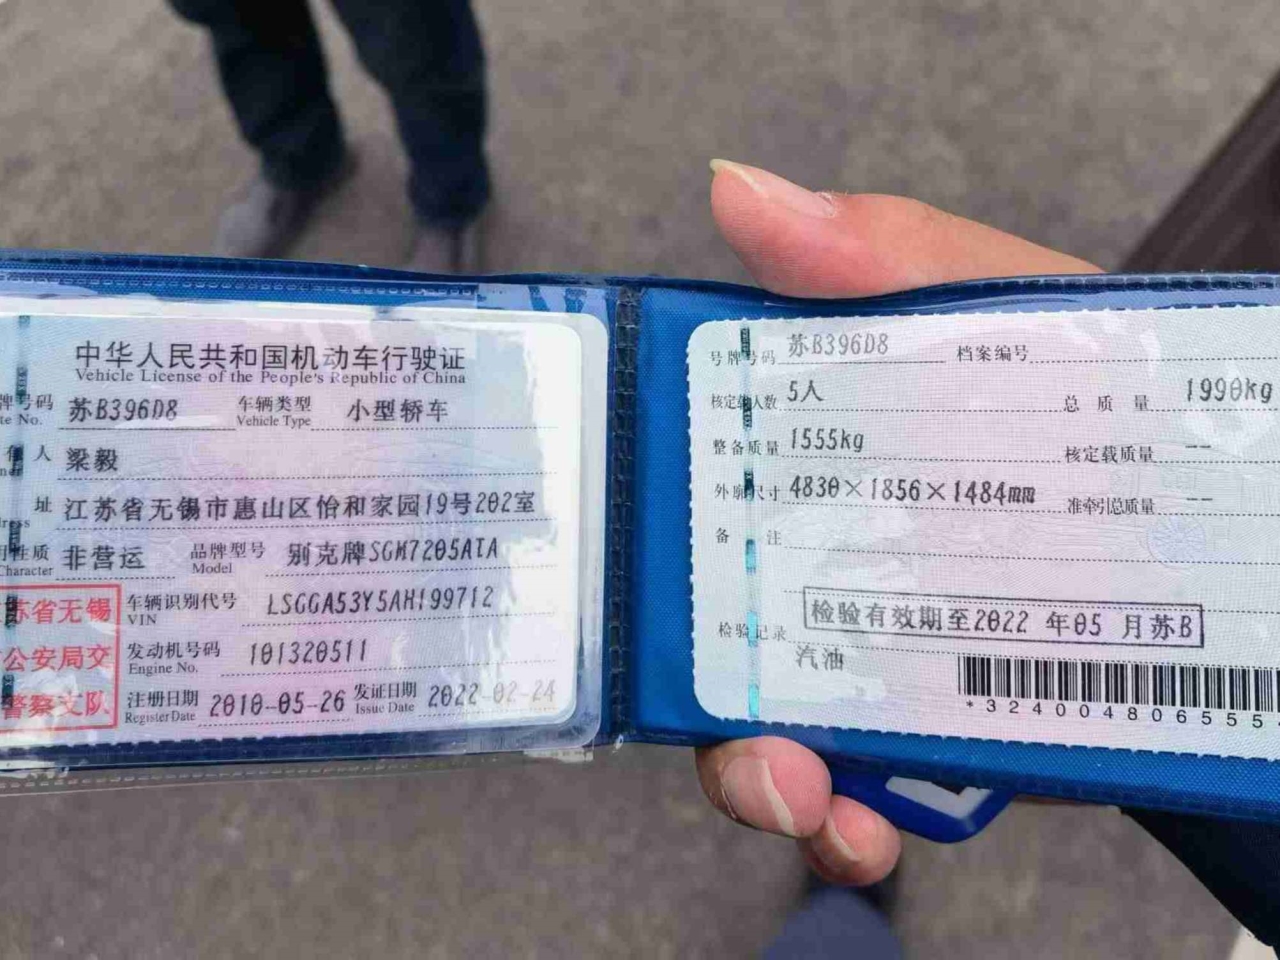 中华人民共和国机动车行驶证
Vehicle License of the People's Republic of China
牌号码 苏B396D8 车辆类型 小型轿车
te No. Vehicle Type
人 梁毅
址 江苏省无锡市惠山区怡和家园19号202室
性质 非营运 品牌型号 别克牌SGM7205ATA
Character Model
苏省无锡
公安局交
警察支队
车辆识别代号 LSGGA53Y5AH199712
VIN
发动机号码 101320511
Engine No.
注册日期 2010-05-26 发证日期 2022-02-24
Register Date Issue Date
号牌号码 苏B396D8 档案编号
核定载人数 5人 总质量 1990kg
整备质量 1555kg 核定载质量 --
外廓尺寸 4830×1856×1484mm 准牵引总质量 --
备注
检验有效期至2022 年05 月苏B
检验记录
汽油
*3240048065555